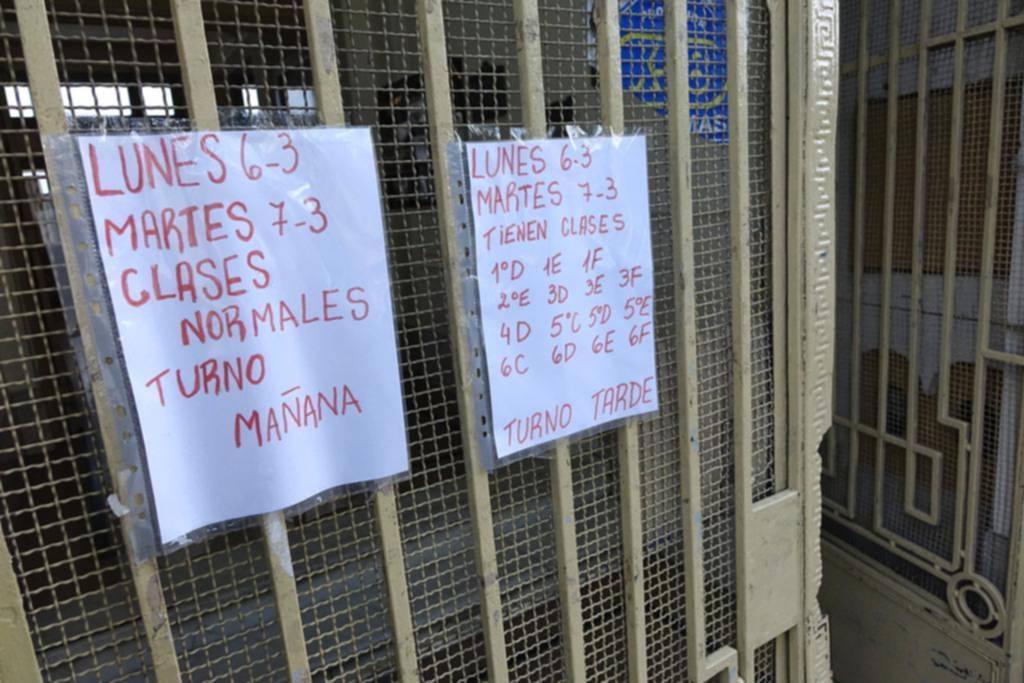 LUNES 6-3
MARTES 7-3
CLASES
NORMALES
TURNO
MAÑANA
LUNES 6-3
MARTES 7-3
TIENEN CLASES
1ºD 1E 1F
2ºE 3D 3E 3F
4D 5ºC 5ºD 5ºE
6C 6D 6E 6F
TURNO TARDE